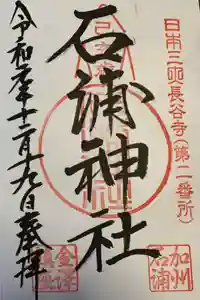 日本三所長谷寺(第二番所)
石浦神社
令和元年十二月十九日奉拝
加州
石浦